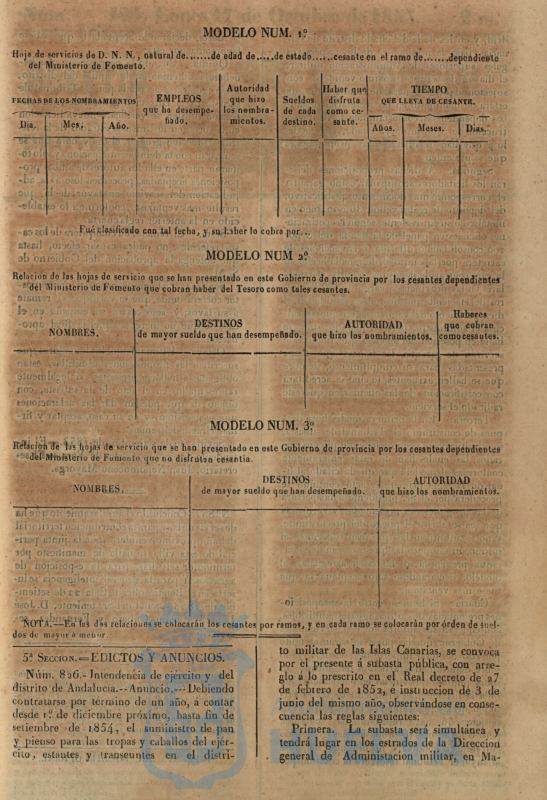 MODELO NUM. 1.º
Hoja de servicios de D. N. N., natural de.......de edad de,....de estado......cesante en el ramo de.......dependiente
del Ministerio de Fomento.
FECHAS DE LOS NOMBRAMIENTOS
Dia. Mes. Año.
EMPLEOS
que ha desempe-
ñado.
Autoridad
que hizo
los nombra-
mientos.
Sueldos
de cada
destino.
Haber que
disfruta
como ce-
sante.
TIEMPO
QUE LLEVA DE CESANTE.
Años. Meses. Dias.
Fué clasificado con tal fecha, y su haber lo cobra por...
MODELO NUM 2º
Relacion de las hojas de servicio que se han presentado en este Gobierno de provincia por los cesantes dependientes
del Ministerio de Fomento que cobran haber del Tesoro como tales cesantes.
NOMBRES.
DESTINOS
de mayor sueldo que han desempeñado.
AUTORIDAD
que hizo los nombramientos.
Haberes
que cobran
como cesantes.
MODELO NUM. 3º
Relacion de las hojas de servicio que se han presentado en este Gobierno de provincia por los cesantes dependientes
del Ministerio de Fomento que no disfrutan cesantia.
NOMBRES.
DESTINOS
de mayor sueldo que han desempeñado.
AUTORIDAD
que hizo los nombramientos.
NOTA.—En las dos relaciones se colocarán los cesantes por ramos, y en cada ramo se colocarán por órden de suel-
dos de mayor á menor.
5ª SECCION.=EDICTOS Y ANUNCIOS.
Núm. 826.- Intendencia de ejército y del
distrito de Andalucia.--Anuncio.---Debiendo
contratarse por término de un año, á contar
desde 1.º de diciembre próximo, hasta fin de
setiembre de 1854, el suministro de pan
y pienso para las tropas y caballos del ejér-
cito, estantes y transeuntes en el distri-
to militar de las Islas Canarias, se convoca
por el presente á subasta pública, con arre-
glo á lo prescrito en el Real decreto de 27
de febrero de 1852, é instruccion de 3 de
junio del mismo año, observándose en conse-
cuencia las reglas siguientes:
Primera. La subasta será simultánea y
tendrá lugar en los estrados de la Direccion
general de Administacion militar, en Ma-